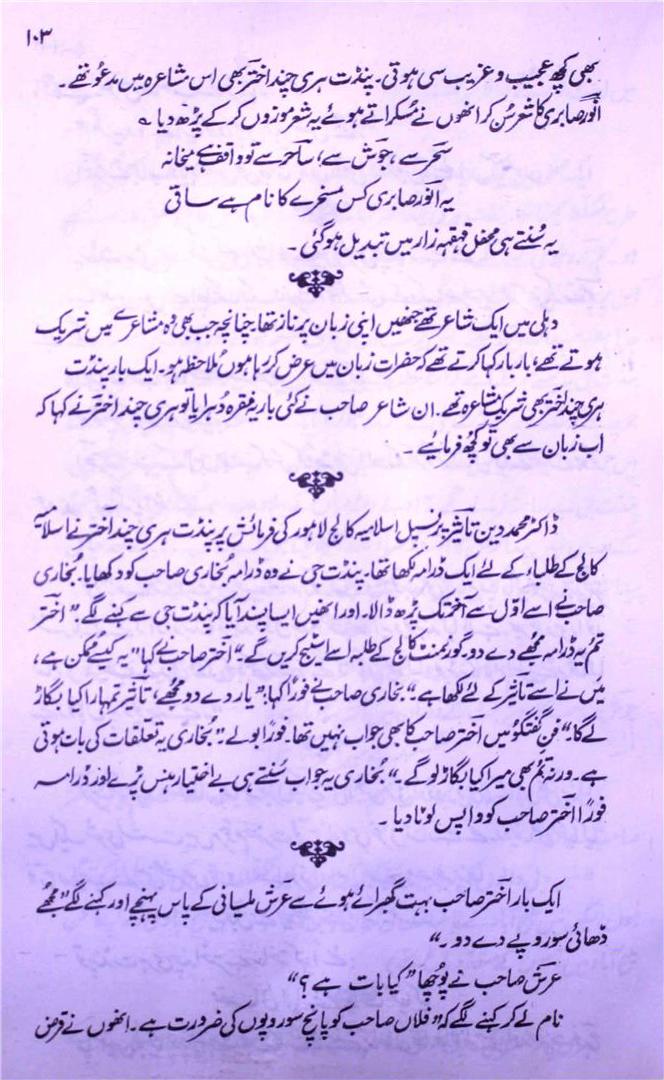 ۱۰۳
بھی کچھ عجیب و غریب سی ہوتی۔ پنڈت ہری چند اختر بھی اس مشاعرہ میں مدعو تھے۔
انور صابری کا شعر سُن کر انھوں نے مُسکراتے ہوئے یہ شعر موزوں کر کے پڑھ دیا ؎
سحر سے، جوش سے، ساحر سے تو واقف ہے میخانہ
یہ انور صابری کس مسخرے کا نام ہے ساقی
یہ سُنتے ہی محفل قہقہہ زار میں تبدیل ہو گئی۔
دہلی میں ایک شاعر تھے جنھیں اپنی زبان پر ناز تھا چنانچہ جب بھی وُہ مشاعرے میں شریک
ہوتے تھے، بار بار کہا کرتے تھے کہ حضرات زبان میں عرض کر رہا ہوں مُلاحظہ ہو۔ ایک بار پنڈت
ہری چند اختر بھی شریکِ مشاعرہ تھے۔ ان شاعر صاحب نے کئی بار یہ فقرہ دُہرایا تو ہری چند اختر نے کہا کہ
اب زبان سے بھی تو کچھ فرمائیے۔
ڈاکٹر محمد دین تاثیر پرنسپل اسلامیہ کالج لاہور کی فرمائش پر پنڈت ہری چند اختر نے اسلامیہ
کالج کے طلباء کے لئے ایک ڈرامہ لکھا تھا۔ پنڈت جی نے وہ ڈرامہ بُخاری صاحب کو دکھایا۔ بُخاری
صاحب نے اسے اوّل سے آخر تک پڑھ ڈالا۔ اور انھیں ایسا پسند آیا کہ پنڈت جی سے کہنے لگے۔ ”اختر
تم یہ ڈرامہ مُجھے دے دو۔ گورنمنٹ کالج کے طلبہ اسے اسٹیج کریں گے۔“ اختر صاحب نے کہا ”یہ کیسے مُمکن ہے،
میں نے اسے تاثیر کے لئے لکھا ہے“۔ بُخاری صاحب نے فوراً کہا: ”یار دے دو مُجھے، تاثیر تمہارا کیا بگاڑ
لے گا۔“ فنِ گفتگو میں اختر صاحب کا بھی جواب نہیں تھا۔ فوراً بولے۔ ”بُخاری یہ تعلقات کی بات ہوتی
ہے۔ ورنہ تم بھی میرا کیا بگاڑ لو گے۔“ بُخاری یہ جواب سُنتے ہی بے اختیار ہنس پڑے اور ڈرامہ
فوراً اختر صاحب کو واپس لوٹا دیا۔
ایک بار اختر صاحب بہت گھبرائے ہوئے سے عرش ملسیانی کے پاس پہنچے اور کہنے لگے ”مُجھے
ڈھائی سو روپے دے دو۔“
عرش صاحب نے پُوچھا ”کیا بات ہے؟“
نام لے کر کہنے لگے کہ ”فلاں صاحب کو پانچ سو روپوں کی ضرورت ہے۔ انھوں نے قرض